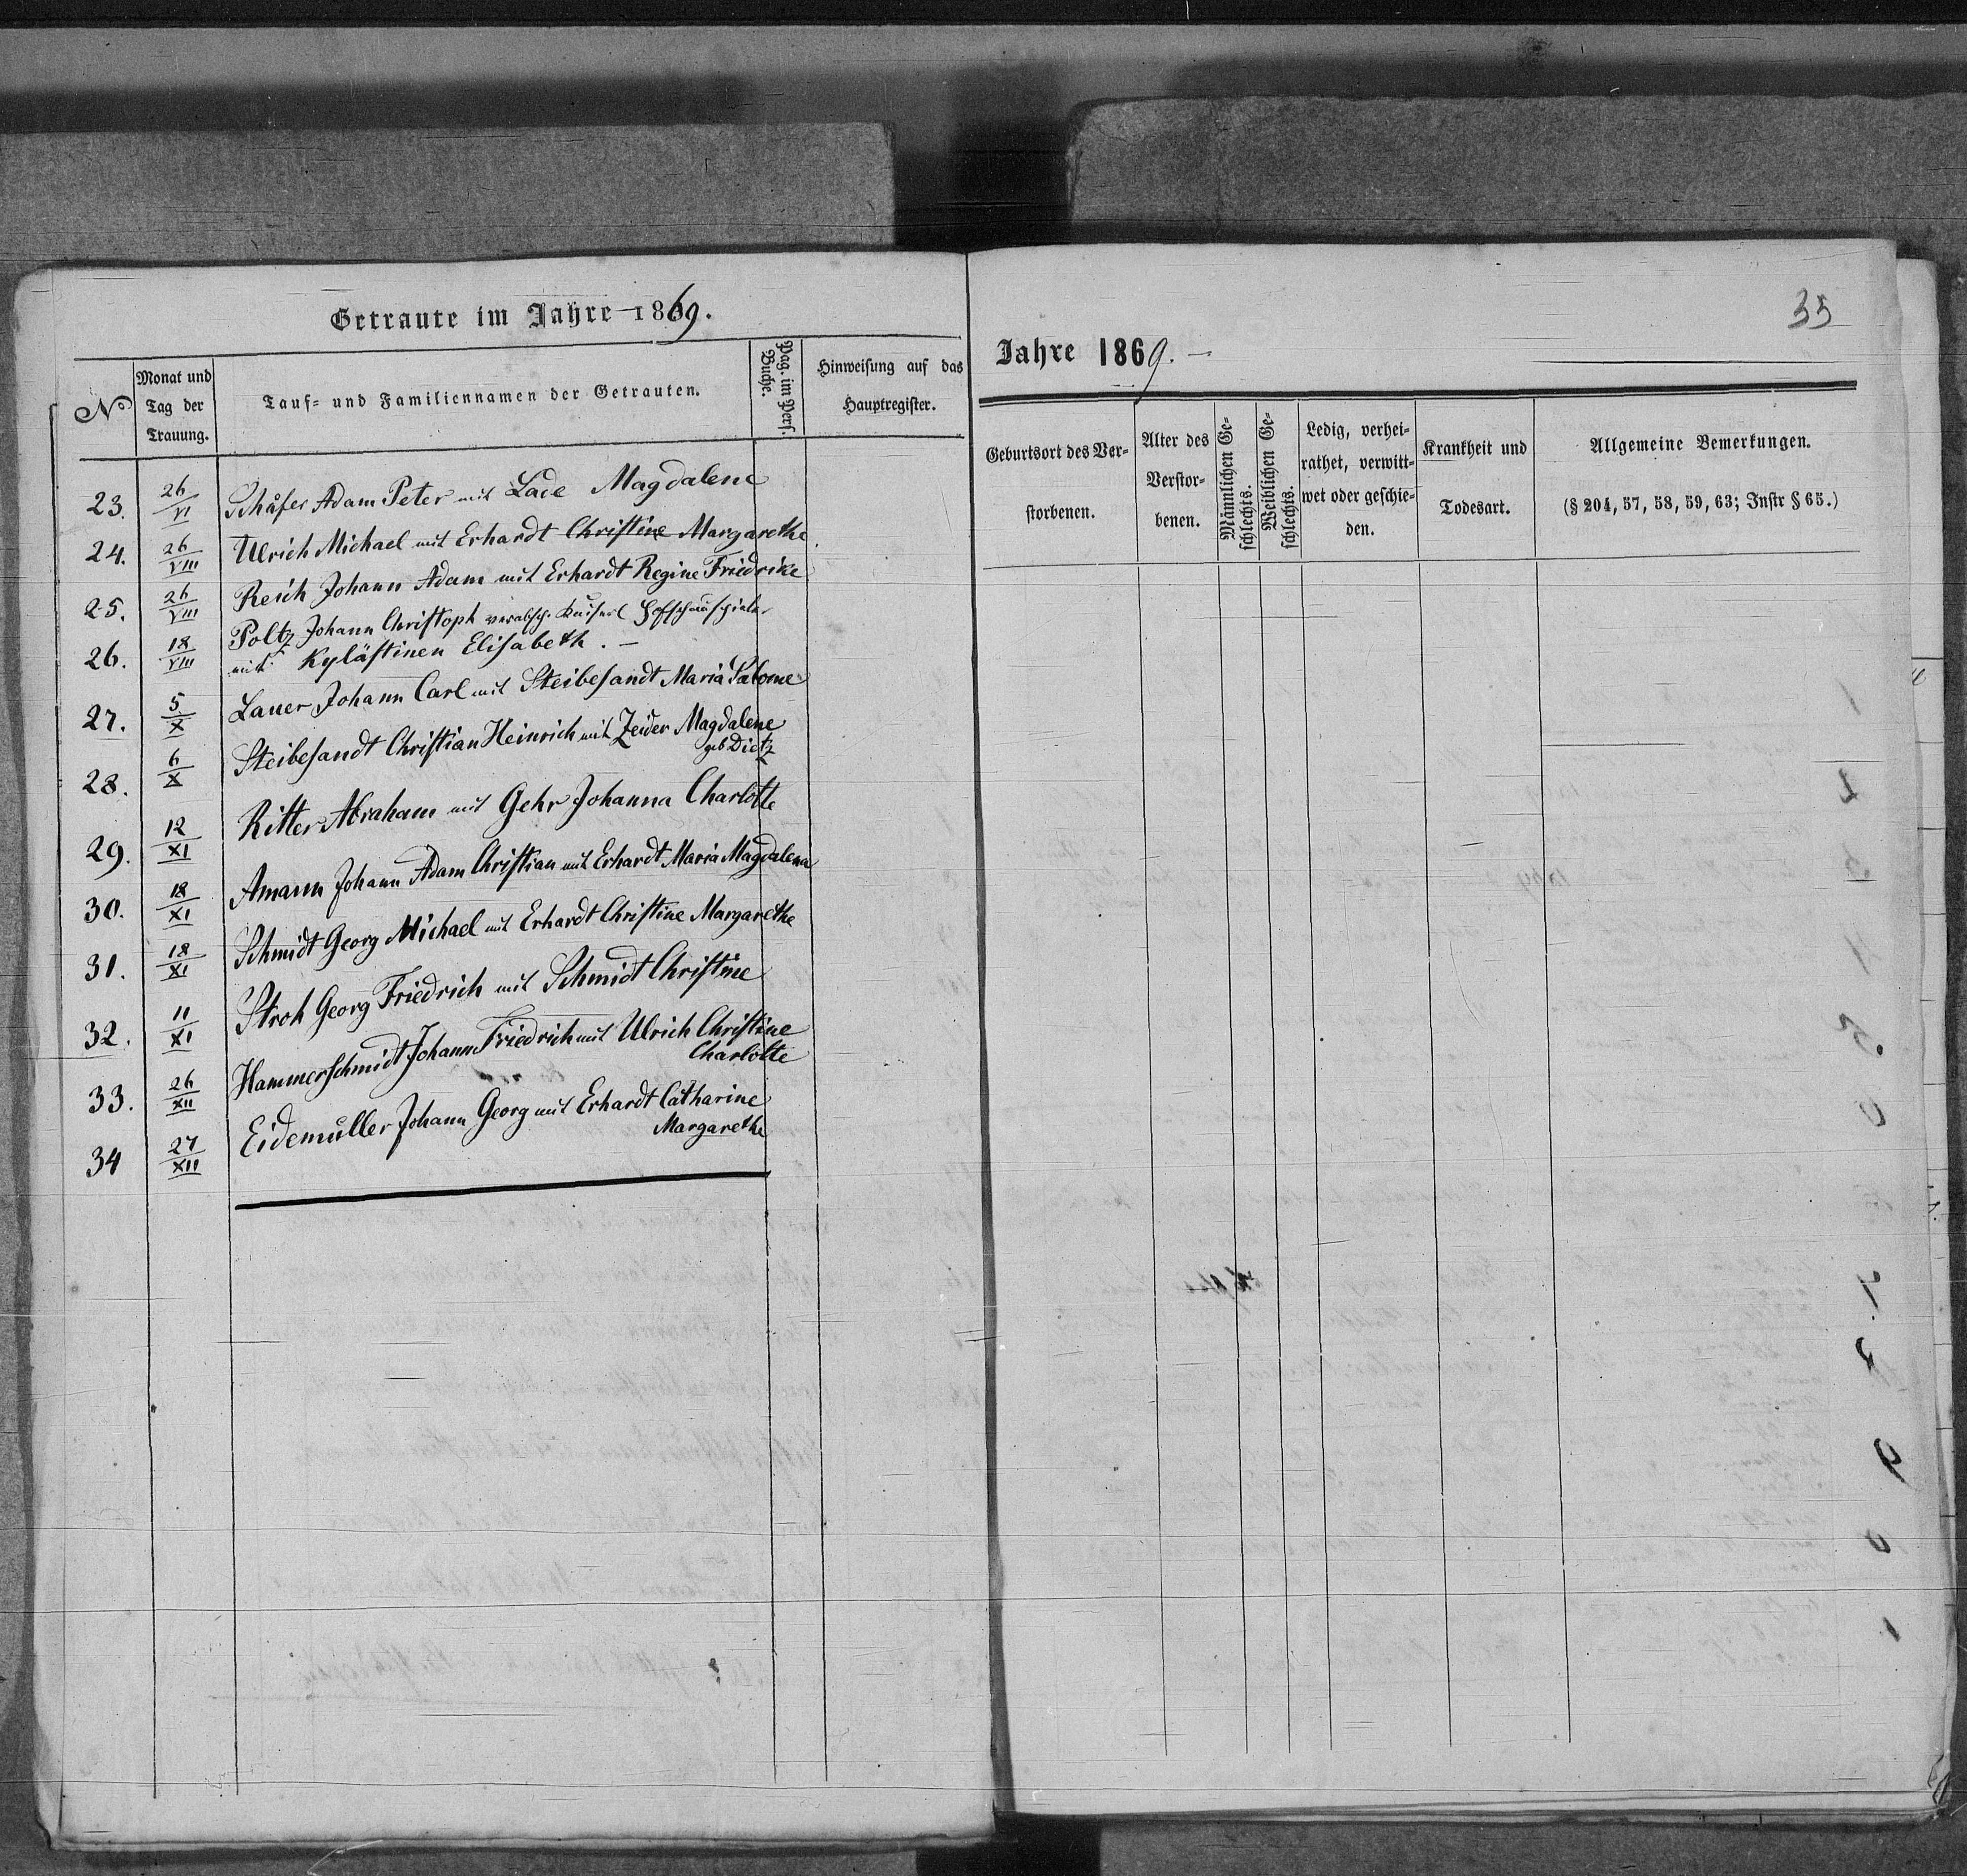 Getraute im Jahre 1869.
No
Monat und Tag der Trauung.
Tauf- und Familiennamen der Getrauten.
Pag. im Pers. Buche.
Hinweisung auf das Hauptregister.
23. 26/VI Schäfer Adam Peter mit Lade Magdalene
24. 26/VIII Ulrich Michael mit Erhardt Christine Margarethe
25. 26/VIII Reich Johann Adam mit Erhardt Regine Friedrike
26. 18/VIII Poltz Johann Christoph verabsch. Kaiserl
mit Kylästinen Elisabeth. –
27. 5/X Lauer Johann Carl mit Steibesandt Maria Salome
28. 6/X Steibesandt Christian Heinrich mit Zeider Magdalene
geb Dietz
29. 12/XI Ritter Abraham mit Gehr Johanna Charlotte
30. 18/XI Amann Johann Adam Christian mit Erhardt Maria Magdalena
31. 18/XI Schmidt Georg Michael mit Erhardt Christine Margarethe
32. 11/XI Stroh Georg Friedrich mit Schmidt Christine
33. 26/XII Hammerschmidt Johann Friedrich mit Ulrich Christine
Charlotte
34 27/XII Eidemüller Johann Georg mit Erhardt Catharine
Margarethe
35
Jahre 1869. –
Geburtsort des Ver-
storbenen.
Alter des
Verstor-
benen.
Männlichen Ge-
schlechts.
Weiblichen Ge-
schlechts.
Ledig, verhei-
rathet, verwitt-
wet oder geschie-
den.
Krankheit und
Todesart.
Allgemeine Bemerkungen.
(§ 204, 57, 58, 59, 63; Instr § 65.)